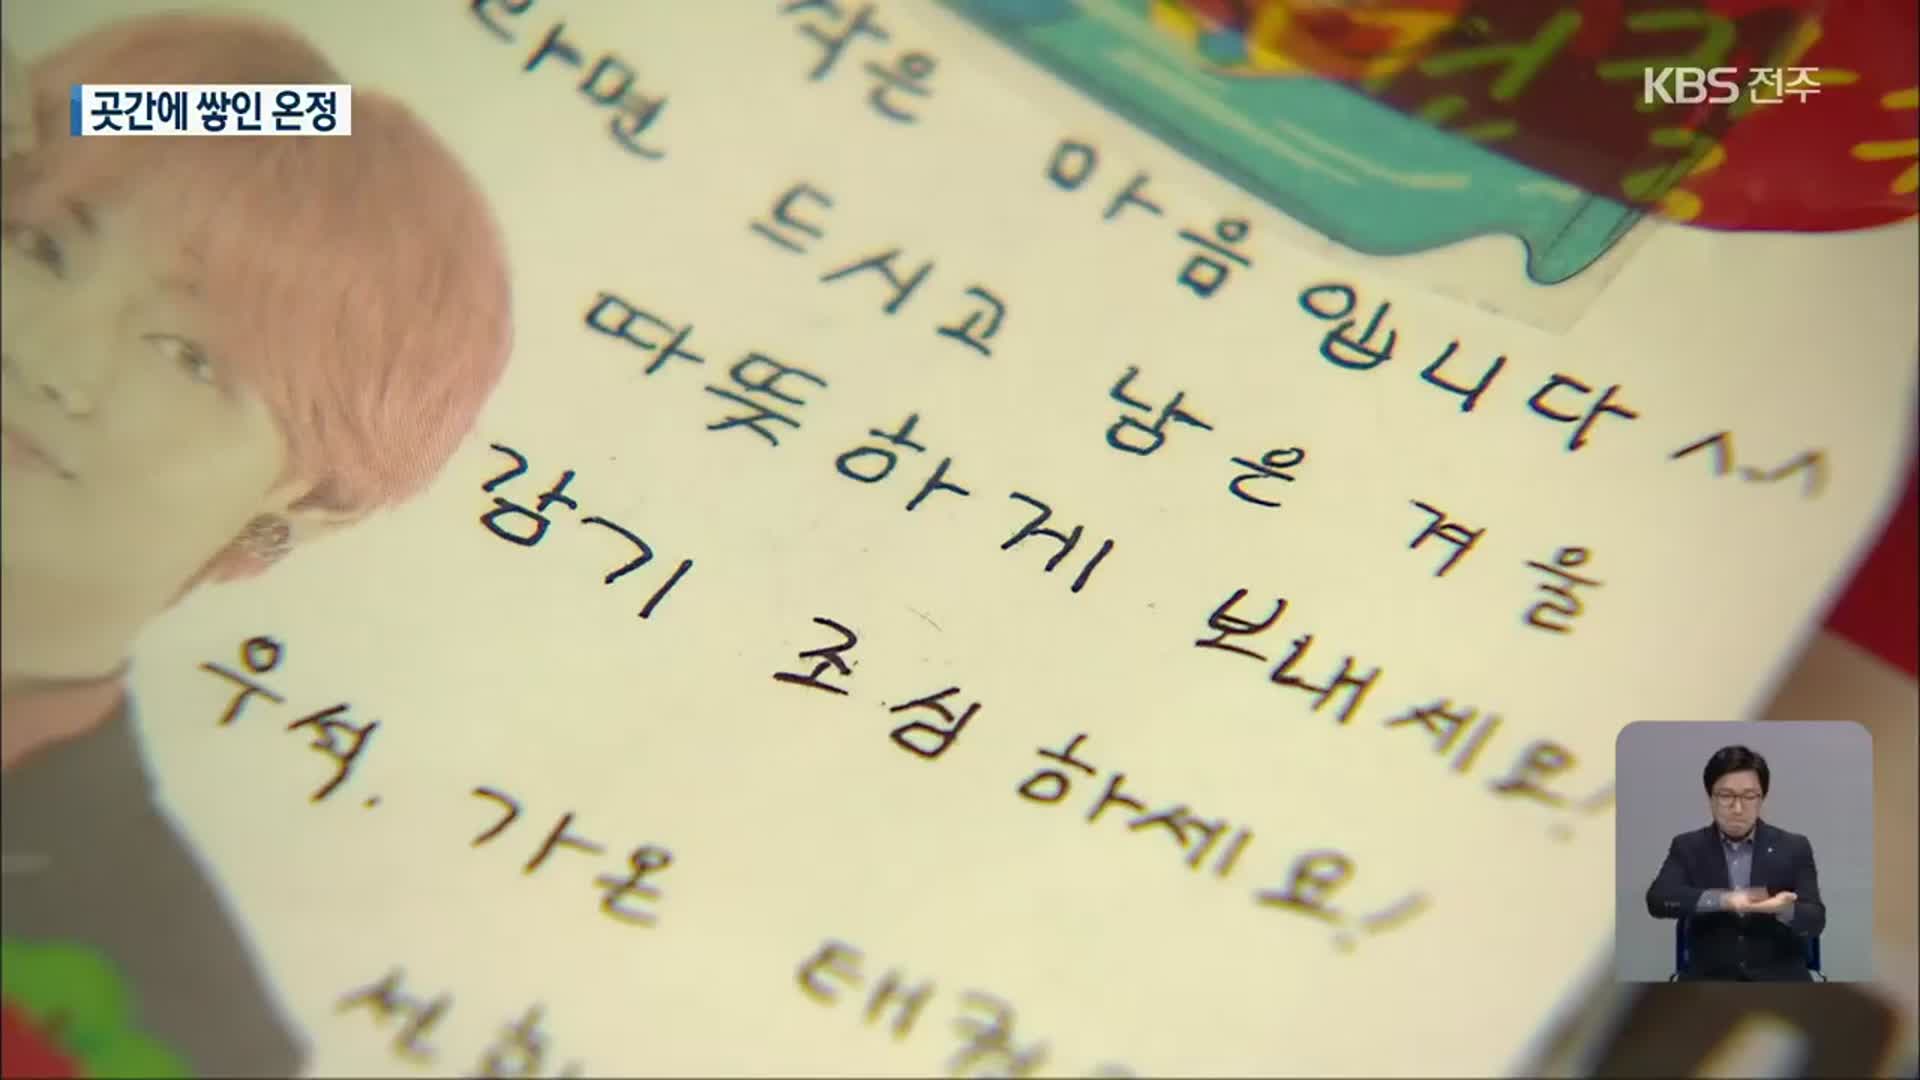 곳간에 쌓인 온정
KBS 전주
작은 마음입니다 ^^
라면 드시고 남은 겨울
따뜻하게 보내세요!
감기 조심하세요!
우석. 가온